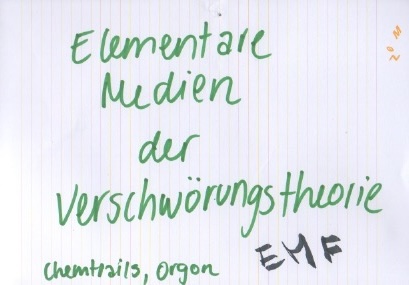 Elementare
Medien
der
Verschwörungstheorie
EMF
Chemtrails, Orgon